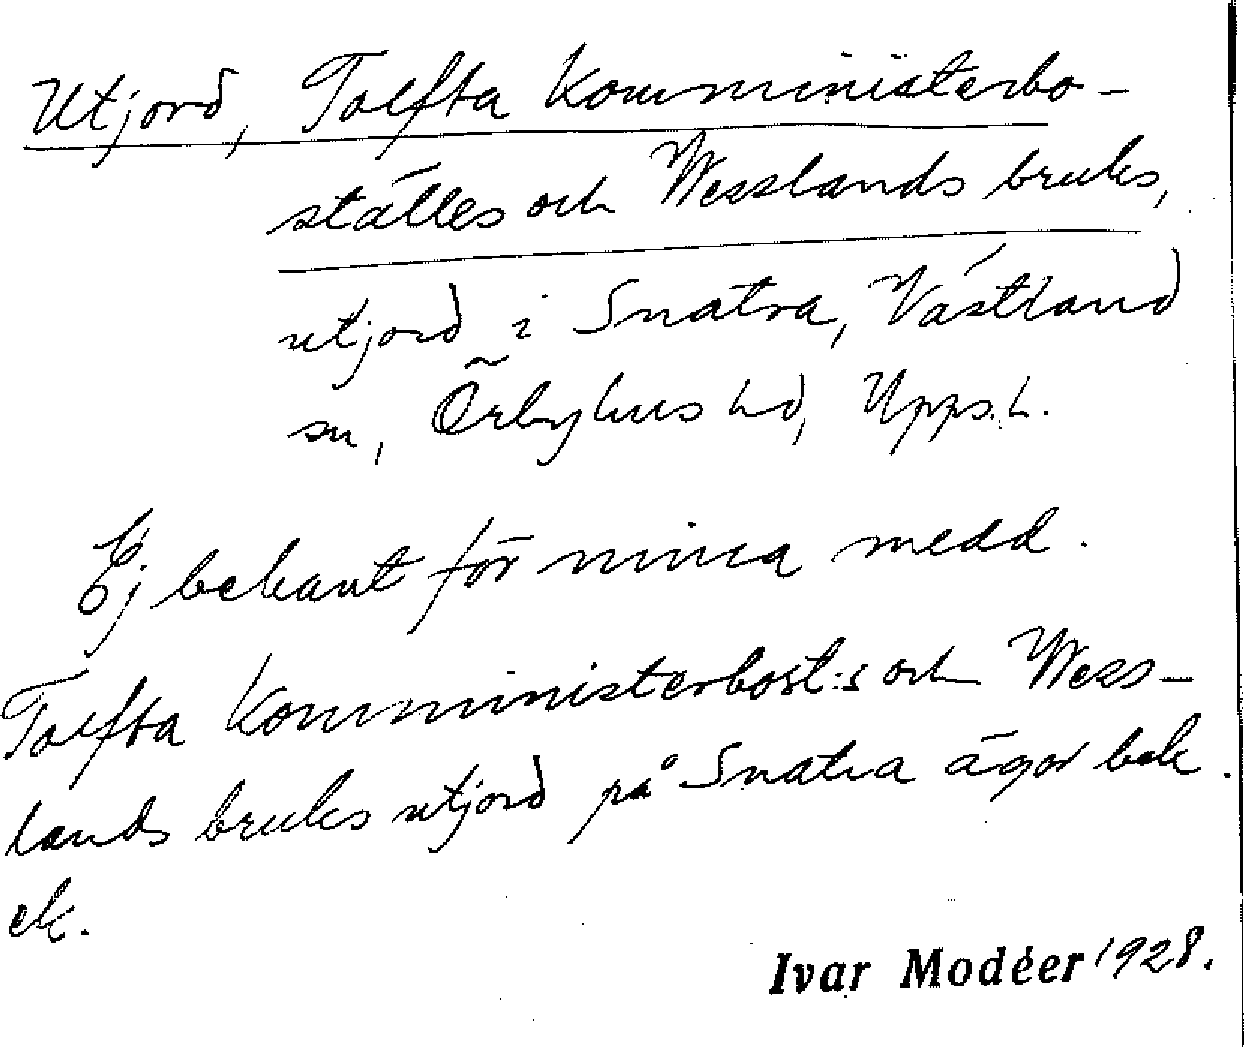 Utjord, Tolfta Komministerbo-
ställes och Wesslands bruks,
utjord i Snatra, Västland
sn, Örbyhus hd, Upps.l.
Ej bekant för mina medd.
Tolfta Komministerbost:s och Wess-
lands bruks utjord på Snatra ägor bek.
ek.
Ivar Modéer 1928.